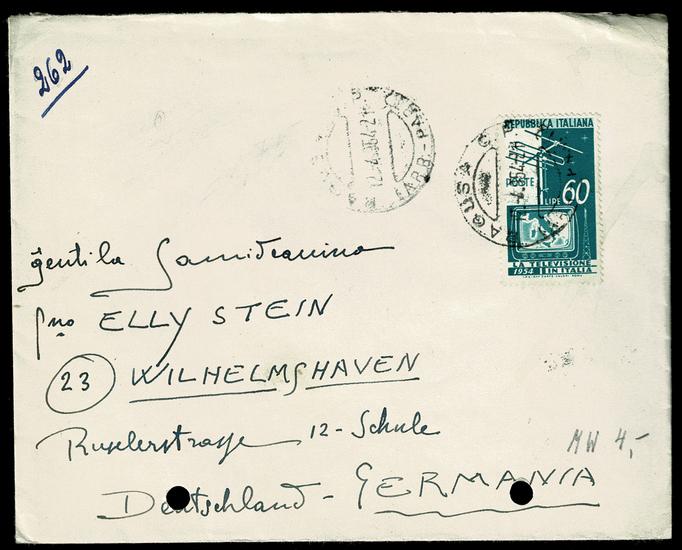 262
REPUBBLICA ITALIANA
POSTE
LIRE 60
LA TELEVISIONE
1954 IN ITALIA
RAGUSA
ĝentila Samideanino
fno ELLY STEIN
23 WILHELMSHAVEN
Ruselerstrasse 12-Schule
MW 4,-
Deutschland - GERMANIA